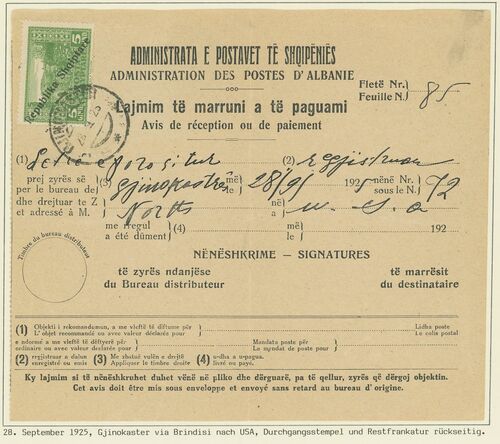 ADMINISTRATA E POSTAVET TË SHQIPËNIËS
ADMINISTRATION DES POSTES D'ALBANIE
Fletë Nr.
Feuille N.) 85
Lajmim të marruni a të paguami
Avis de réception ou de paiement
Republika Shqiptare
5
(1) Letrë e porositur (2) regjistruar
prej zyrës së
per le bureau de (3) Gjinokastrë më le 28/9/ 1925 nënë Nr. sous le N. 72
dhe drejtuar te Z
et adressé à M. North në a u. S. a
me rregul
a été dûment (4) më le 192
Timbre du bureau distributeur
NËNËSHKRIME — SIGNATURES
të zyrës ndanjëse të marrësit
du Bureau distributeur du destinataire
(1) Objekti i rekomandemun, a me vleftë të diftume për Lidha poste
L'objet recommandé ou avec valeur déclarée pour Le colis postal
e ndormë a me vleftë të deftyerë për Mandato poste për
ordinaire ou avec valeur déclarée pour Le mandat de poste pour
(2) rregjistruar a dalun (3) Me zbatuë vulën e drejtë (4) u-dha a u-pagua.
enregistré ou émis Appliquer le timbre droite. livré ou payé.
Ky lajmim si të nënëshkruhet duhet vënë në pliko dhe dërguarë, pa të qellur, zyrës që dërgoj objektin.
Cet avis doit être mis sous enveloppe et envoyé sans retard au bureau d'origine.
28. September 1925, Gjinokaster via Brindisi nach USA, Durchgangsstempel und Restfrankatur rückseitig.